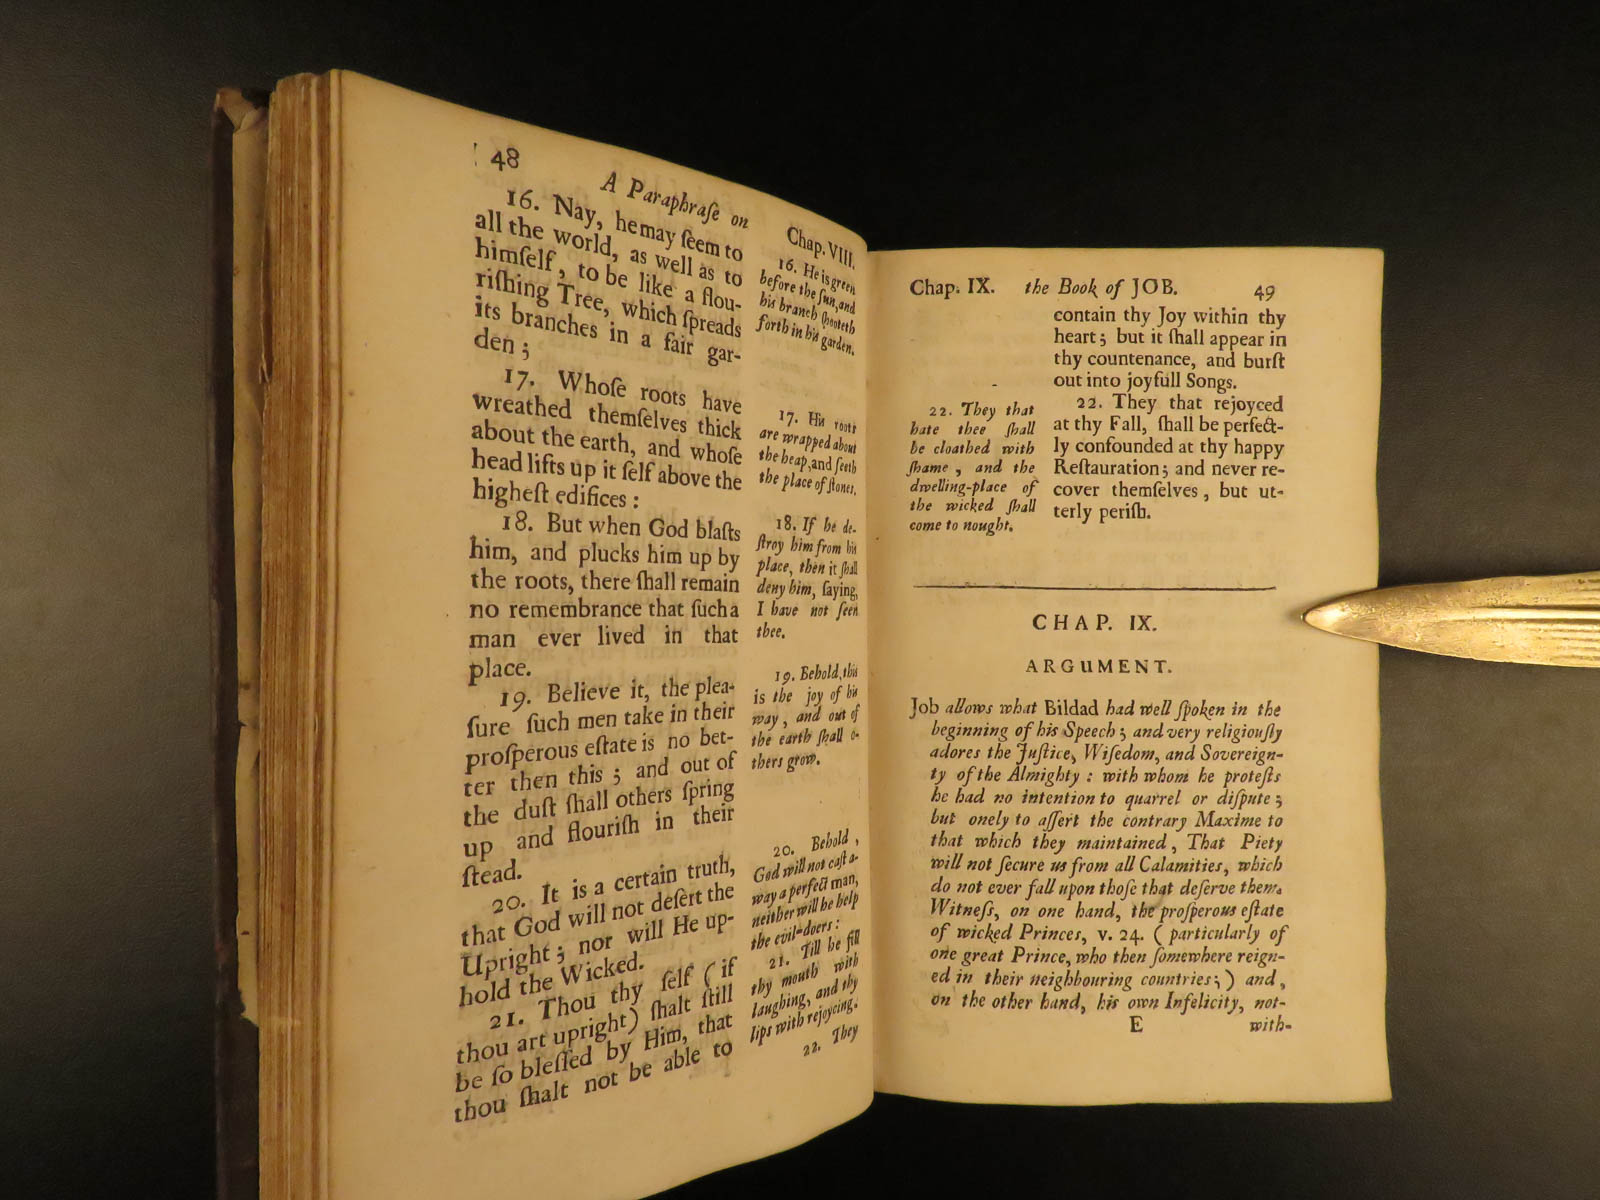 48
A Paraphraſe on
Chap. VIII.
16. Nay, he may ſeem to
all the world, as well as to
himſelf, to be like a flou-
riſhing Tree, which ſpreads
its branches in a fair gar-
den;
17. Whoſe roots have
wreathed themſelves thick
about the earth, and whoſe
head lifts up it ſelf above the
higheſt edifices:
18. But when God blaſts
him, and plucks him up by
the roots, there ſhall remain
no remembrance that ſuch a
man ever lived in that
place.
19. Believe it, the plea-
ſure ſuch men take in their
proſperous eſtate is no bet-
ter then this; and out of
the duſt ſhall others ſpring
up and flouriſh in their
ſtead.
20. It is a certain truth,
that God will not deſert the
Upright; nor will He up-
hold the Wicked.
21. Thou thy ſelf (if
thou art upright) ſhalt ſtill
be ſo bleſſed by Him, that
thou ſhalt not be able to
16. He is green
before the ſun, and
his branch ſhooteth
forth in his garden.
17. His roots
are wrapped about
the heap, and ſeeth
the place of ſtones.
18. If he de-
ſtroy him from his
place, then it ſhall
deny him, ſaying,
I have not ſeen
thee.
19. Behold, this
is the joy of his
way, and out of
the earth ſhall o-
thers grow.
20. Behold,
God will not caſt a-
way a perfect man,
neither will he help
the evil-doers:
21. Till he fill
thy mouth with
laughing, and thy
lips with rejoycing.
22. They
Chap. IX. the Book of JOB. 49
contain thy Joy within thy
heart; but it ſhall appear in
thy countenance, and burſt
out into joyfull Songs.
22. They that rejoyced
at thy Fall, ſhall be perfect-
ly confounded at thy happy
Reſtauration; and never re-
cover themſelves, but ut-
terly periſh.
22. They that
hate thee ſhall
be cloathed with
ſhame, and the
dwelling-place of
the wicked ſhall
come to nought.
CHAP. IX.
ARGUMENT.
Job allows what Bildad had well ſpoken in the
beginning of his Speech; and very religiouſly
adores the Juſtice, Wiſedom, and Sovereign-
ty of the Almighty: with whom he proteſts
he had no intention to quarrel or diſpute;
but onely to aſſert the contrary Maxime to
that which they maintained, That Piety
will not ſecure us from all Calamities, which
do not ever fall upon thoſe that deſerve them.
Witneſs, on one hand, the proſperous eſtate
of wicked Princes, v. 24. (particularly of
one great Prince, who then ſomewhere reign-
ed in their neighbouring countries;) and,
on the other hand, his own Infelicity, not-
E with-